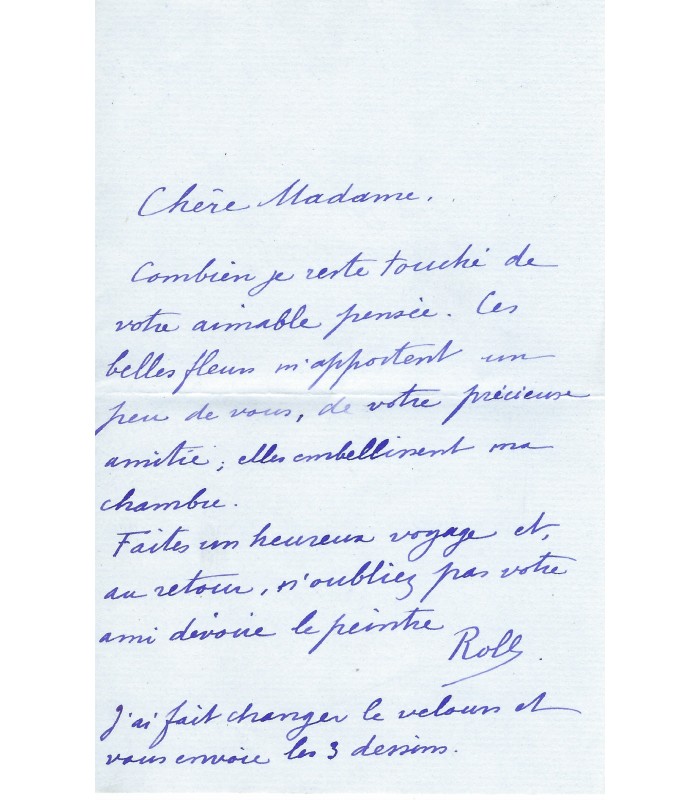 Chère Madame.
Combien je reste touché de
votre aimable pensée. Ces
belles fleurs m'apportent un
peu de vous, de votre précieuse
amitié; elles embellissent ma
chambre.
Faites un heureux voyage et,
au retour, n'oubliez pas votre
ami dévoué le peintre
Roll
J'ai fait changer le velours et
vous envoie les 3 dessins.